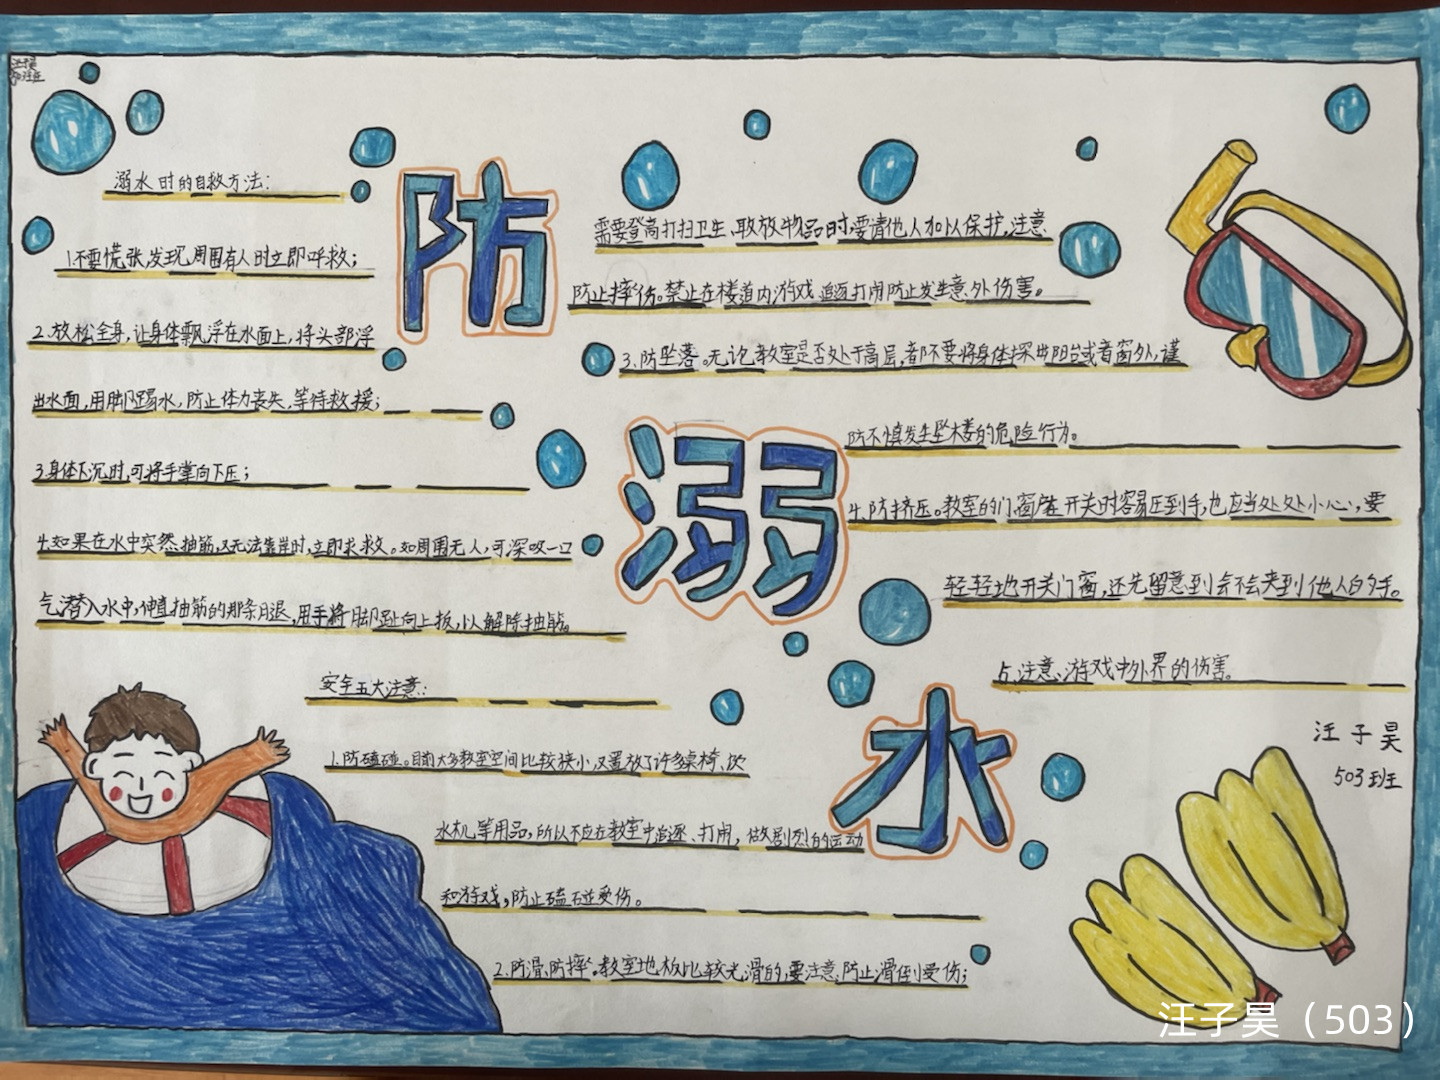 溺水时的自救方法:
1.不要慌张发现周围有人时立即呼救;
2.放松全身,让身体飘浮在水面上,将头部浮
出水面,用脚踢水,防止体力丧失,等待救援;
3.身体下沉时,可将手掌向下压;
4.如果在水中突然抽筋,又无法靠岸时,立即求救。如周围无人,可深吸一口
气潜入水中,伸直抽筋的那条腿,用手将脚趾向上扳,以解除抽筋。
安全五大注意:
1.防磕碰。目前大多教室空间比较狭小,又置放了许多桌椅、饮
水机等用品,所以不应在教室中追逐、打闹,做剧烈的运动
和游戏,防止磕碰受伤。
2.防滑、防摔。教室地板比较光滑的,要注意防止滑倒受伤;
需要登高打扫卫生、取放物品时,要请他人加以保护,注意
防止摔伤。禁止在楼道内游戏追逐打闹防止发生意外伤害。
3.防坠落。无论教室是否处于高层,都不要将身体探出阳台或者窗外,谨
防不慎发生坠楼的危险行为。
4.防挤压。教室的门、窗户在开关时容易压到手,也应当处处小心,要
轻轻地开关门窗,还先留意到会不会夹到他人的手。
5.注意游戏中外界的伤害。
防
溺
水
汪子昊
503班
汪子昊（503）